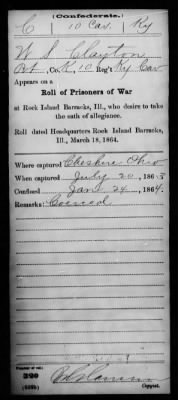 (Confederate.)
C 10 Cav. Ky
W. S. Clayton
Pvt, Co. K, 10 Reg't Ky Cav
Appears on a
Roll of Prisoners of War
at Rock Island Barracks, Ill., who desire to take
the oath of allegiance.
Roll dated Headquarters Rock Island Barracks,
Ill., March 18, 1864.
Where captured Cheshire Ohio
When captured July 20, 1863
Confined Jany 24, 1864.
Remarks: Conscd
Number of roll:
320
(639b)
Copyist.